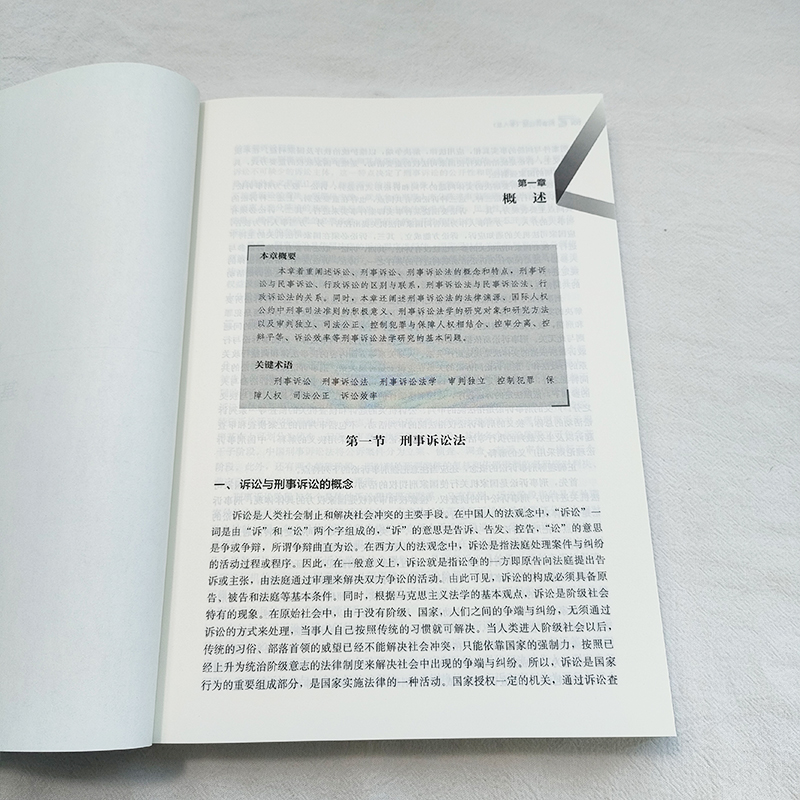 第一章
概 述
本章概要
本章着重阐述诉讼、刑事诉讼、刑事诉讼法的概念和特点，刑事诉
讼与民事诉讼、行政诉讼的区别与联系，刑事诉讼法与民事诉讼法、行
政诉讼法的关系。同时，本章还阐述刑事诉讼法的法律渊源。国际人权
公约中刑事司法准则的积极意义、刑事诉讼法学的研究对象和研究方法
以及审判独立、司法公正、控制犯罪与保障人权相结合、控审分离、控
辩平等、诉讼效率等刑事诉讼法学研究的基本问题。
关键术语
刑事诉讼 刑事诉讼法 刑事诉讼法学 审判独立 控制犯罪 保
障人权 司法公正 诉讼效率
第一节 刑事诉讼法
一、诉讼与刑事诉讼的概念
诉讼是人类社会制止和解决社会冲突的主要手段。在中国人的法观念中，“诉讼”一
词是由“诉”和“讼”两个字组成的，“诉”的意思是告诉、告发、控告，“讼”的意思
是争或争辩，所谓争辩曲直为讼。在西方人的法观念中，诉讼是指法庭处理案件与纠纷
的活动过程或程序。因此，在一般意义上，诉讼就是指讼争的一方即原告向法庭提出告
诉或主张，由法庭通过审理来解决双方争讼的活动。由此可见，诉讼的构成必须具备原
告、被告和法庭等基本条件。同时，根据马克思主义法学的基本观点，诉讼是阶级社会
特有的现象。在原始社会中，由于没有阶级、国家，人们之间的争端与纠纷，无须通过
诉讼的方式来处理，当事人自己按照传统的习惯就可解决。当人类进入阶级社会以后，
传统的习俗、部落首领的威望已经不能解决社会冲突，只能依靠国家的强制力，按照已
经上升为统治阶级意志的法律制度来解决社会中出现的争端与纠纷。所以，诉讼是国家
行为的重要组成部分，是国家实施法律的一种活动。国家授权一定的机关，通过诉讼查